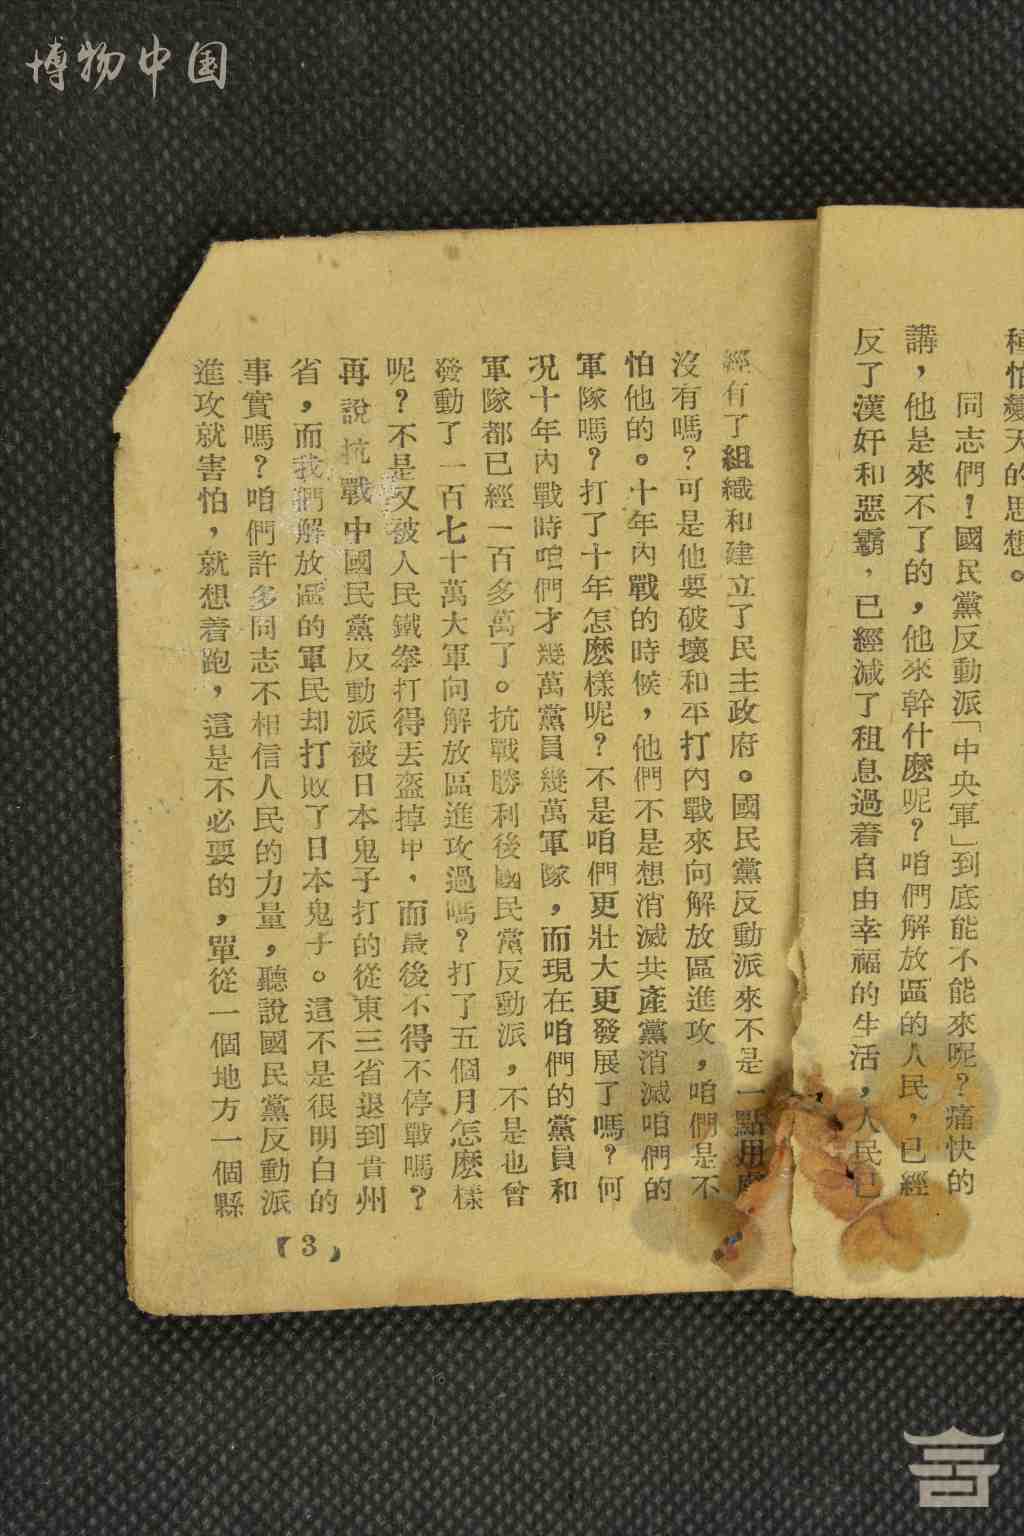 博物中国
種怕變天的思想。
同志們！國民黨反動派「中央軍」到底能不能來呢？痛快的
講，他是來不了的，他來幹什麽呢？咱們解放區的人民，已經
反了漢奸和惡霸，已經減了租息過着自由幸福的生活，人民已
經有了組織和建立了民主政府。國民黨反動派來不是一點用處
沒有嗎？可是他要破壞和平打內戰來向解放區進攻，咱們是不
怕他的。十年內戰的時候，他們不是想消滅共產黨消滅咱們的
軍隊嗎？打了十年怎麽樣呢？不是咱們更壯大更發展了嗎？何
况十年內戰時咱們才幾萬黨員幾萬軍隊，而現在咱們的黨員和
軍隊都已經一百多萬了。抗戰勝利後國民黨反動派，不是也曾
發動了一百七十萬大軍向解放區進攻過嗎？打了五個月怎麽樣
呢？不是又被人民鐵拳打得丟盔掉甲，而最後不得不停戰嗎？
再說抗戰中國民黨反動派被日本鬼子打的從東三省退到貴州
省，而我們解放區的軍民却打敗了日本鬼子。這不是很明白的
事實嗎？咱們許多同志不相信人民的力量，聽說國民黨反動派
進攻就害怕，就想着跑，這是不必要的，單從一個地方一個縣
【3】